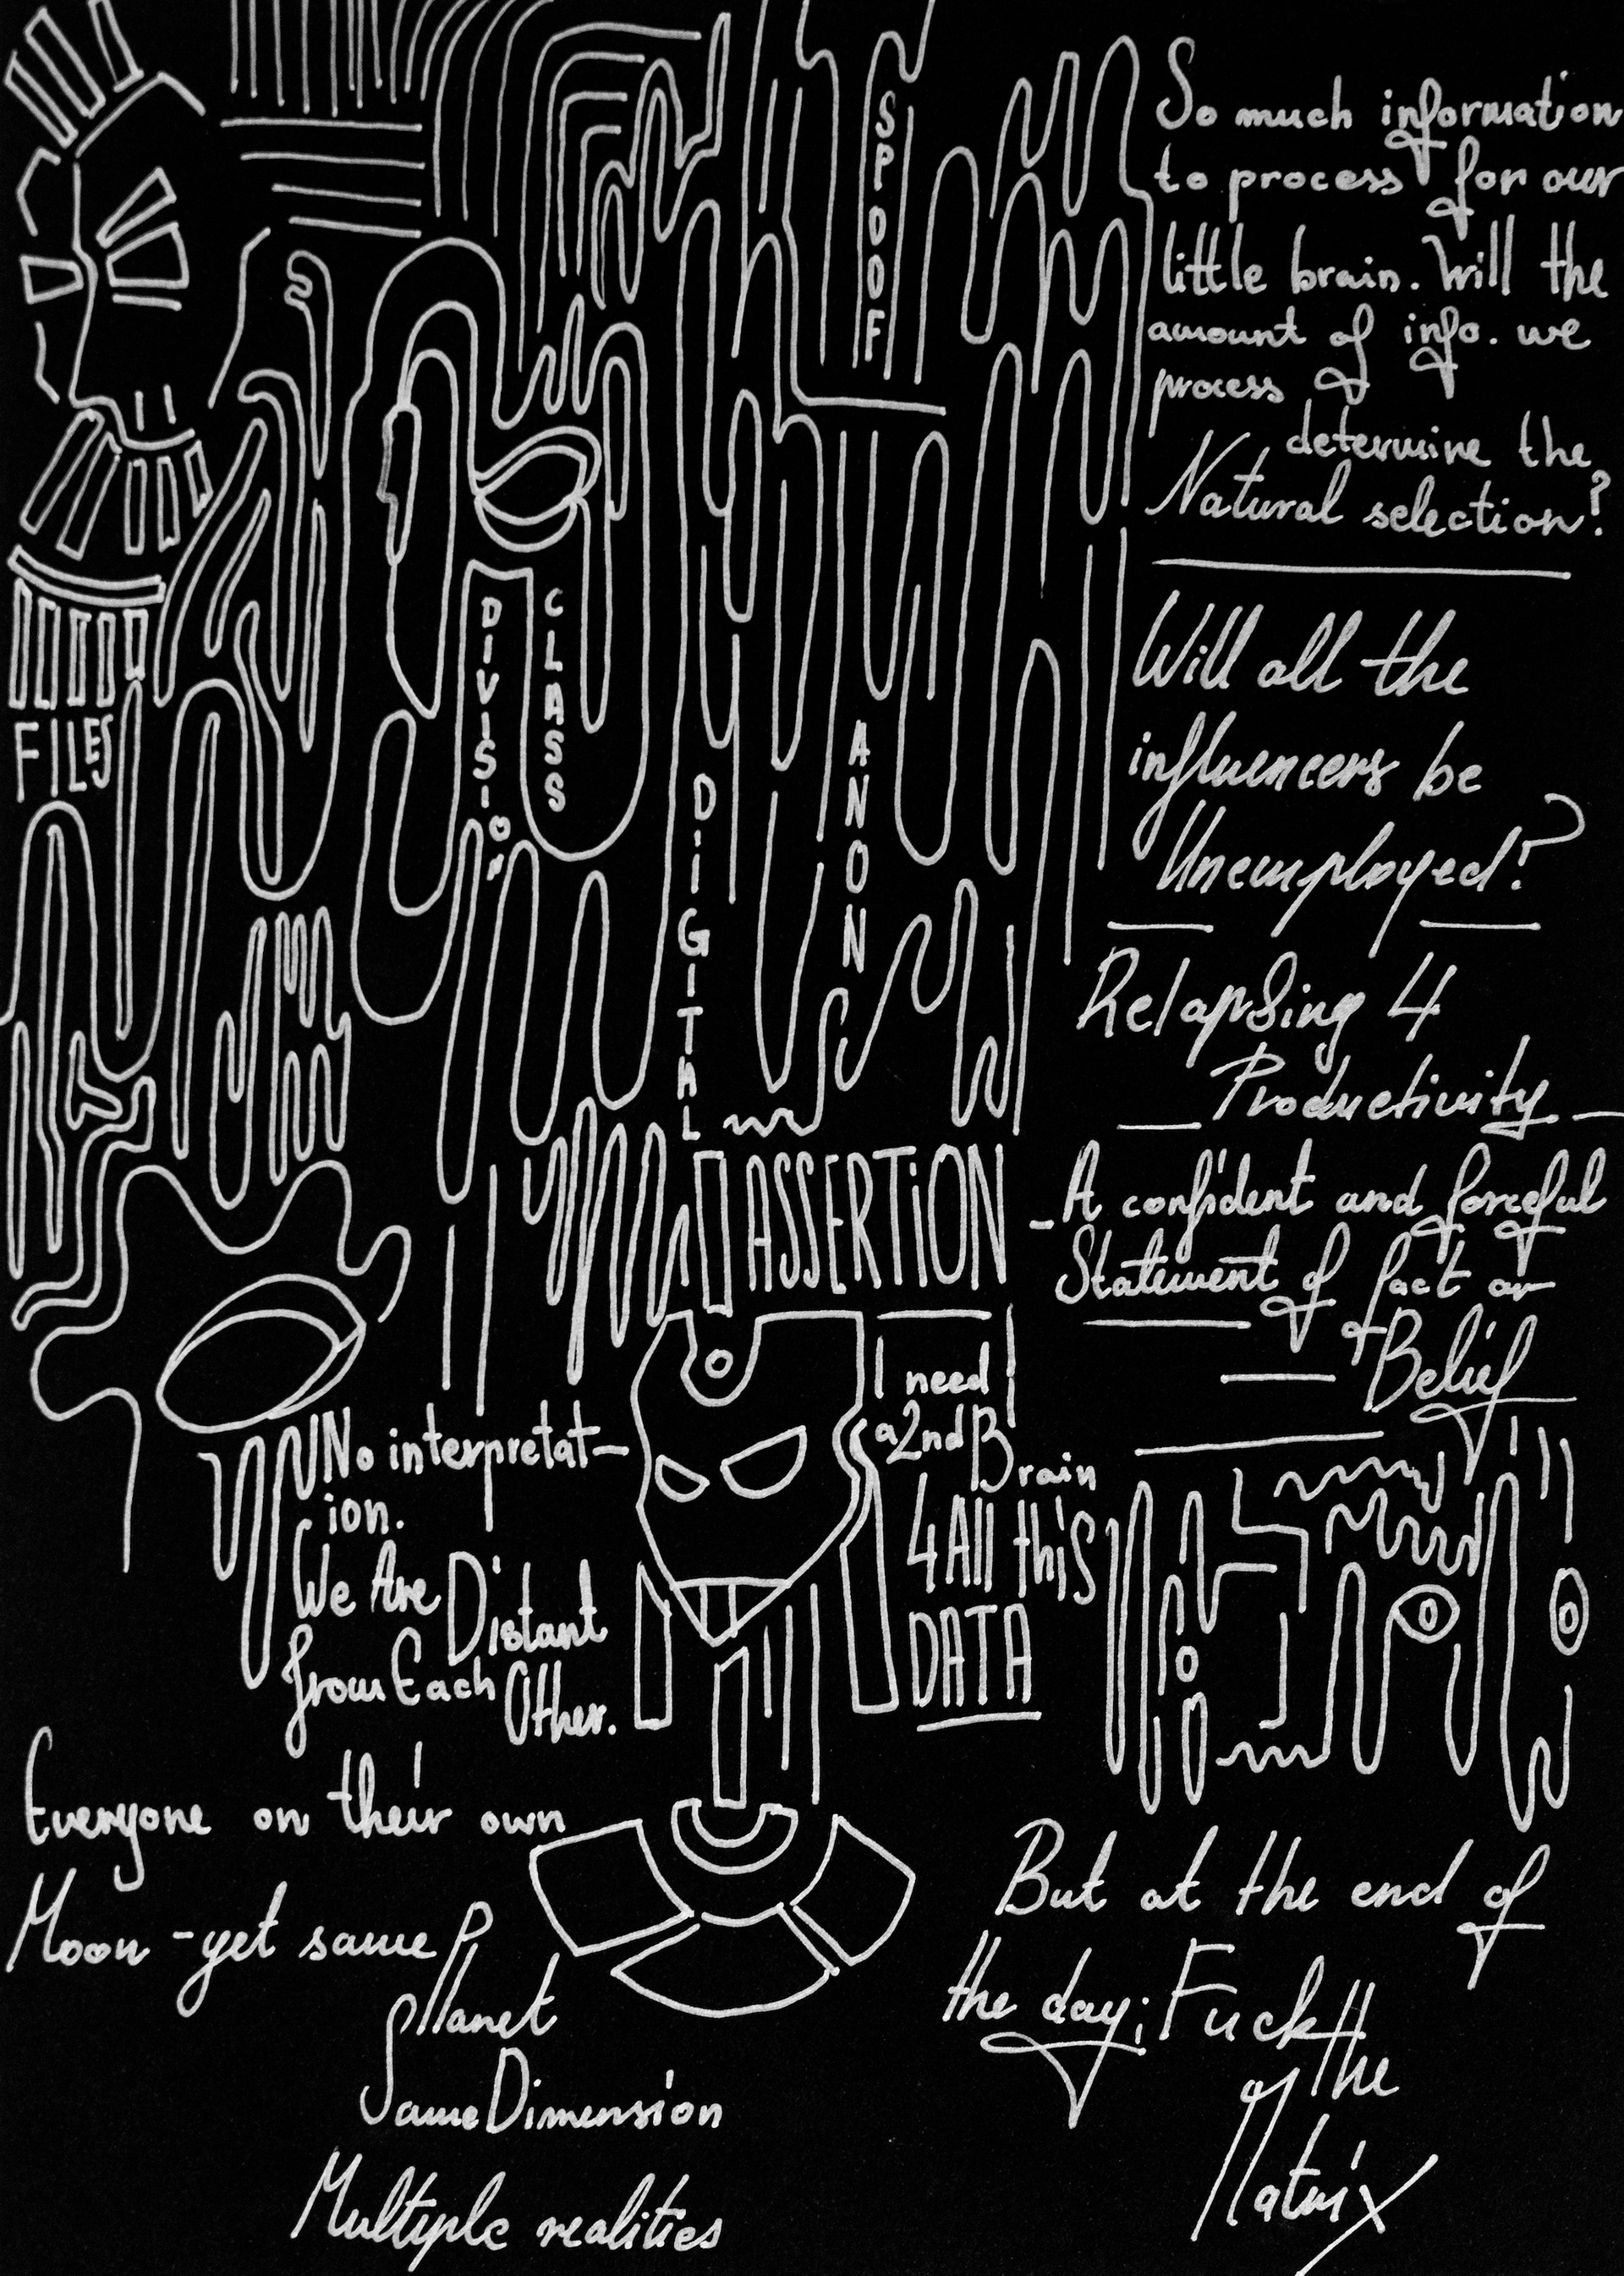 So much information
to process for our
little brain. Will the
amount of info. we
process
determine the
Natural selection?
Will all the
influencers be
Unemployed?
Relapsing 4
Productivity
SPOOF
DIVISION
CLASS
FILES
DIGITAL
ANON
ASSERTION
- A confident and forceful
Statement of fact or
Belief
I need
a 2nd Brain
4 All this
DATA
No interpretat-
ion.
We Are Distant
from Each Other.
Everyone on their own
Moon - yet same
Planet
Same Dimension
Multiple realities
But at the end of
the day; Fuck the
of the
Matrix